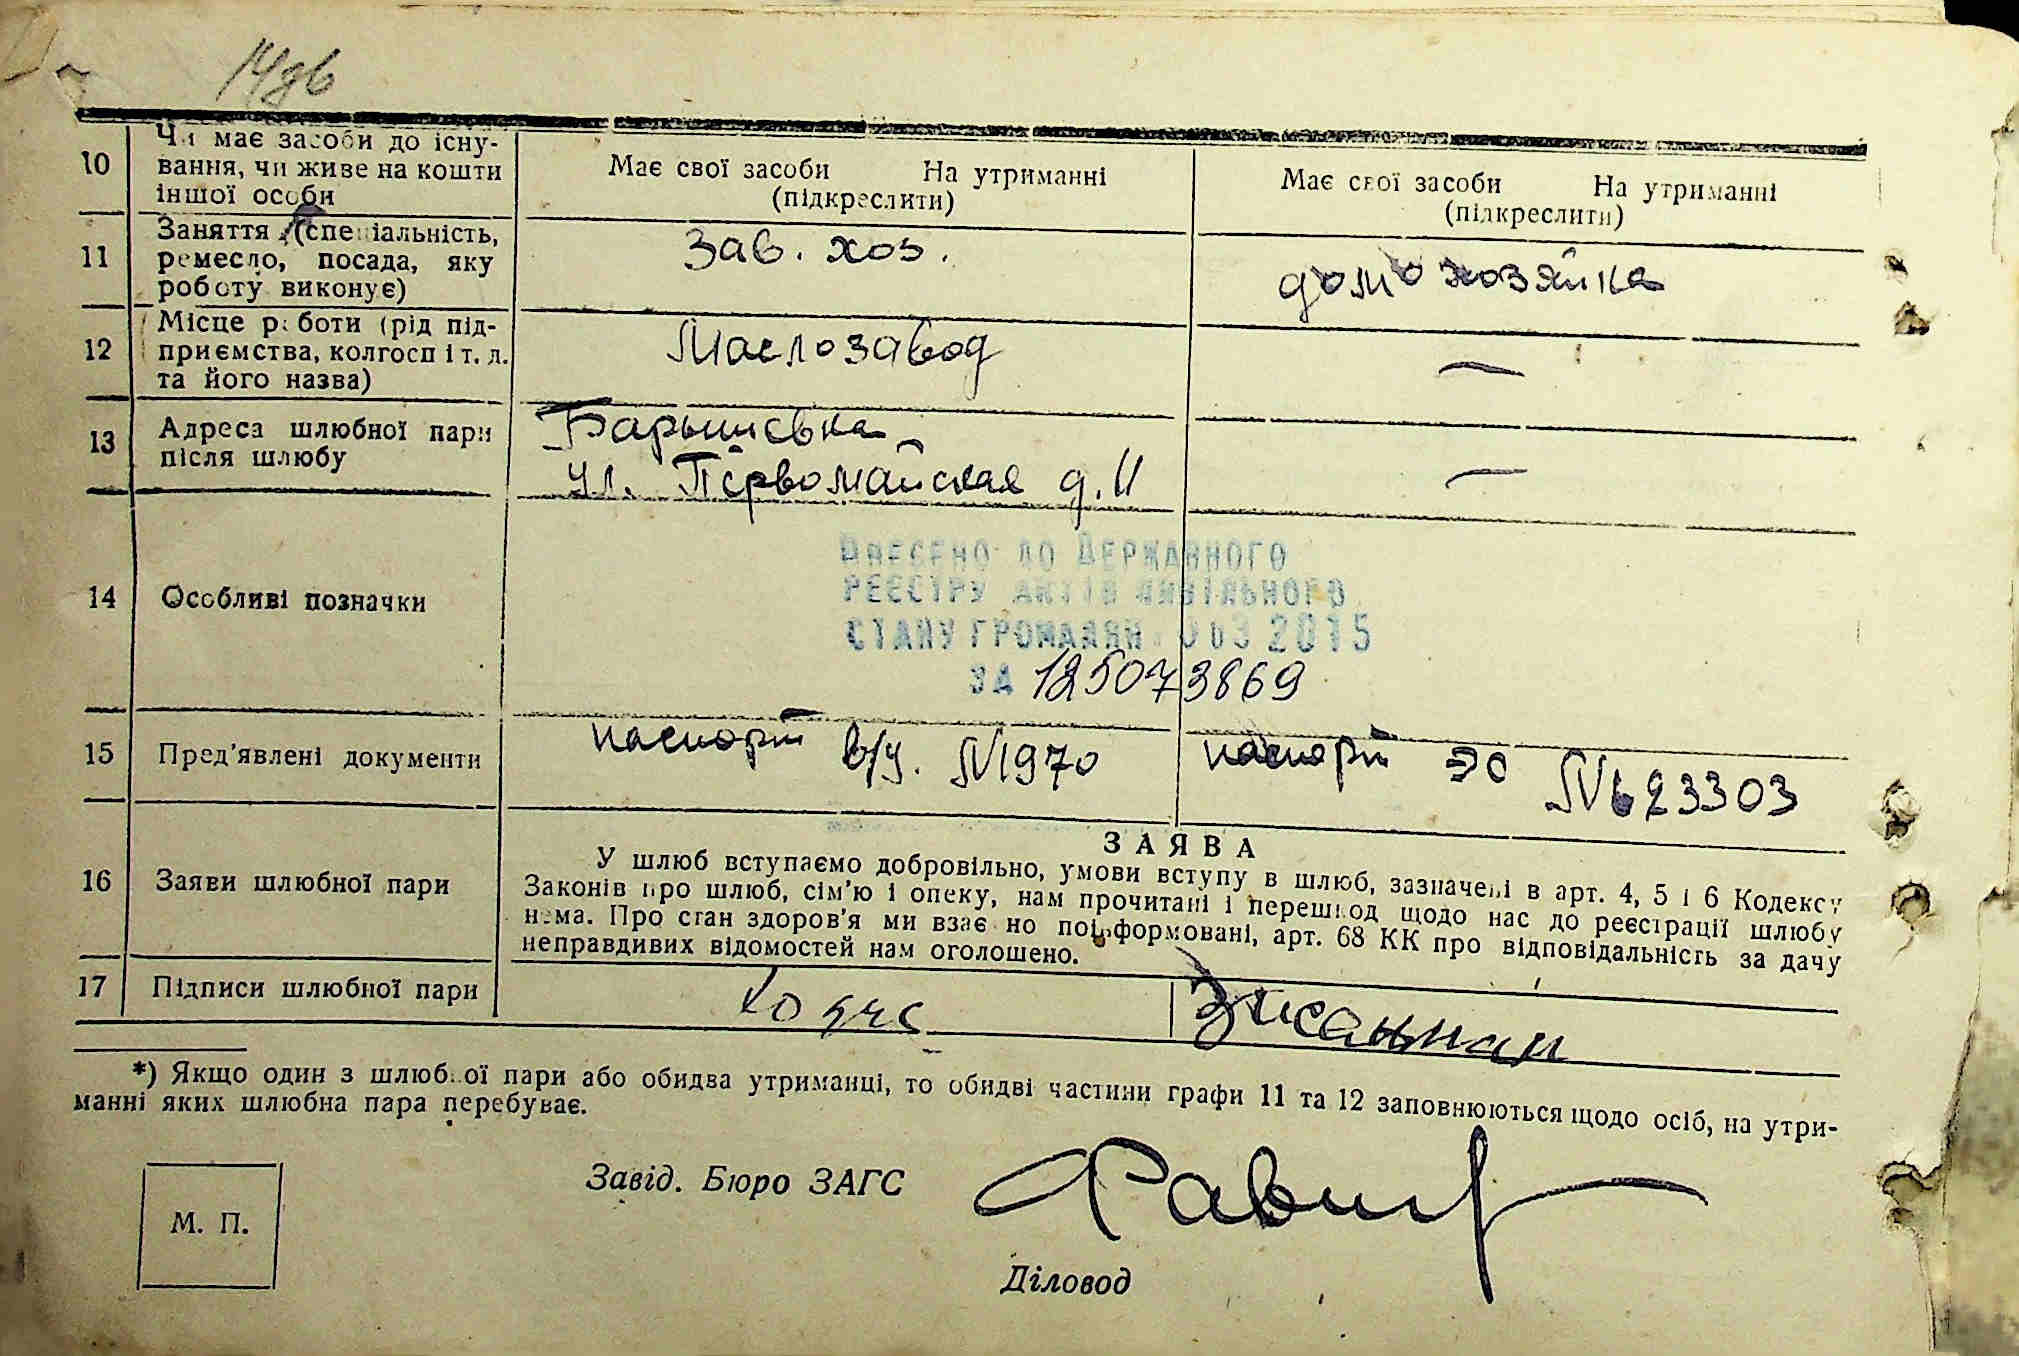 14дв
10
Чи має засоби до існу-
вання, чи живе на кошти
іншої особи
Має свої засоби На утриманні
(підкреслити)
Має свої засоби На утриманні
(підкреслити)
11
Заняття (спеціальність,
ремесло, посада, яку
роботу виконує)
Зав. хоз.
домохозяйка
12
Місце роботи (рід під-
приємства, колгосп і т. д.
та його назва)
Маслозавод
—
13
Адреса шлюбної пари
після шлюбу
Барышевка
ул. Первомайская д. 11
—
14
Особливі позначки
ВНЕСЕНО ДО ДЕРЖАВНОГО
РЕЄСТРУ АКТІВ ЦИВІЛЬНОГО
СТАНУ ГРОМАДЯН 2015
ЗА 125073869
15
Пред'явлені документи
паспорт в/у. №1970
паспорт ЭС №623303
16
Заяви шлюбної пари
ЗАЯВА
У шлюб вступаємо добровільно, умови вступу в шлюб, зазначені в арт. 4, 5 і 6 Кодексу
Законів про шлюб, сім'ю і опеку, нам прочитані і перешкод щодо нас до реєстрації шлюбу
нема. Про стан здоров'я ми взаємно поінформовані, арт. 68 КК про відповідальність за дачу
неправдивих відомостей нам оголошено.
17
Підписи шлюбної пари
*) Якщо один з шлюбної пари або обидва утриманці, то обидві частини графи 11 та 12 заповнюються щодо осіб, на утри-
манні яких шлюбна пара перебуває.
Завід. Бюро ЗАГС
М. П.
Діловод